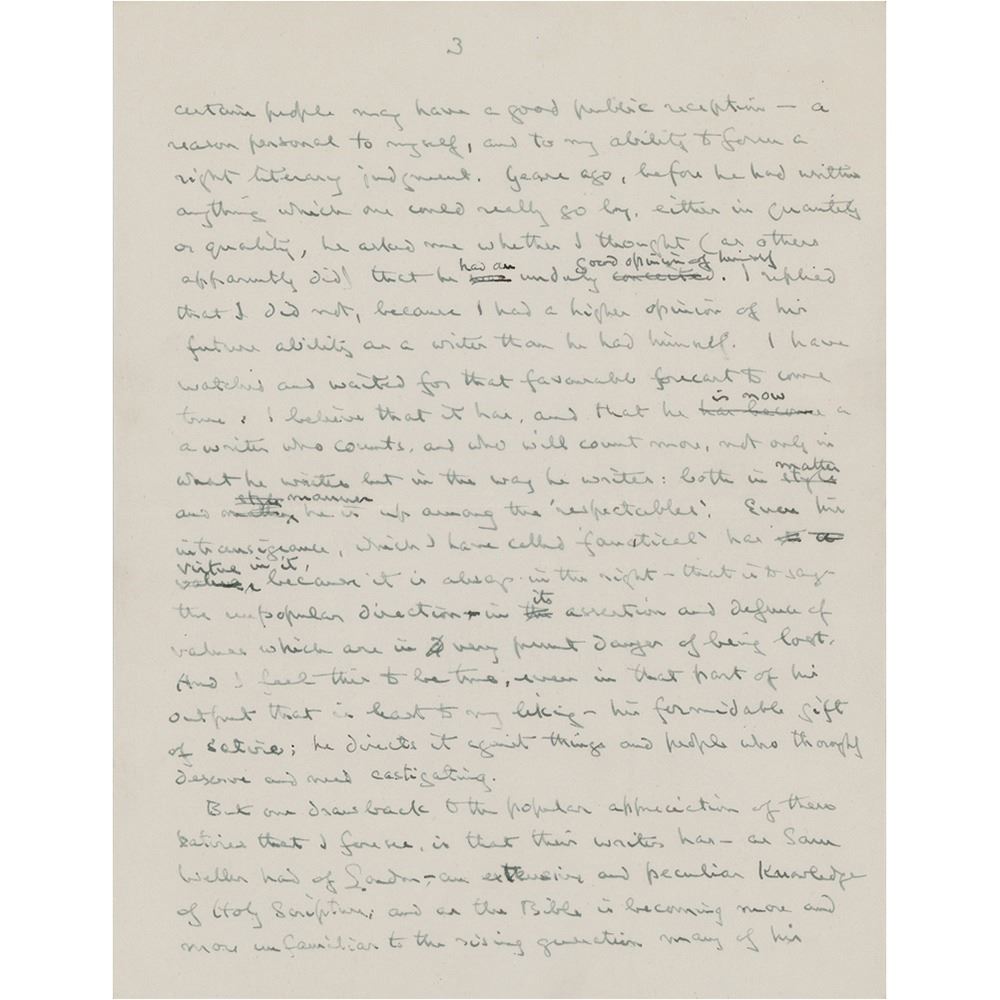 3
certain people may have a good public reception — a
reason personal to myself, and to my ability to form a
right literary judgment. Years ago, before he had written
anything which one could really go by, either in quantity
or quality, he asked me whether I thought (as others
had an good opinion of himself
apparently did) that he was unduly conceited. I replied
that I did not, because I had a higher opinion of his
future ability as a writer than he had himself. I have
watched and waited for that favourable forecast to come
is now
true; I believe that it has, and that he has become a
a writer who counts, and who will count more, not only in
matter
what he writes but in the way he writes: both in style
style manner
and he is up among the 'respectables'. Even his
intransigeance, which I have called 'fanatical' has
virtue in it,
value, because it is always in the right – that is to say
its
the unpopular direction – in the assertion and defence of
values which are in very present danger of being lost.
And I feel this to be true, even in that part of his
output that is least to my liking – his formidable gift
of satire; he directs it against things and people who thoroughly
deserve and need castigating.
But one drawback to the popular appreciation of these
satires that I foresee, is that their writer has – as Sam
Weller had of London – an extensive and peculiar Knowledge
of Holy Scripture; and as the Bible is becoming more and
more unfamiliar to the rising generation many of his